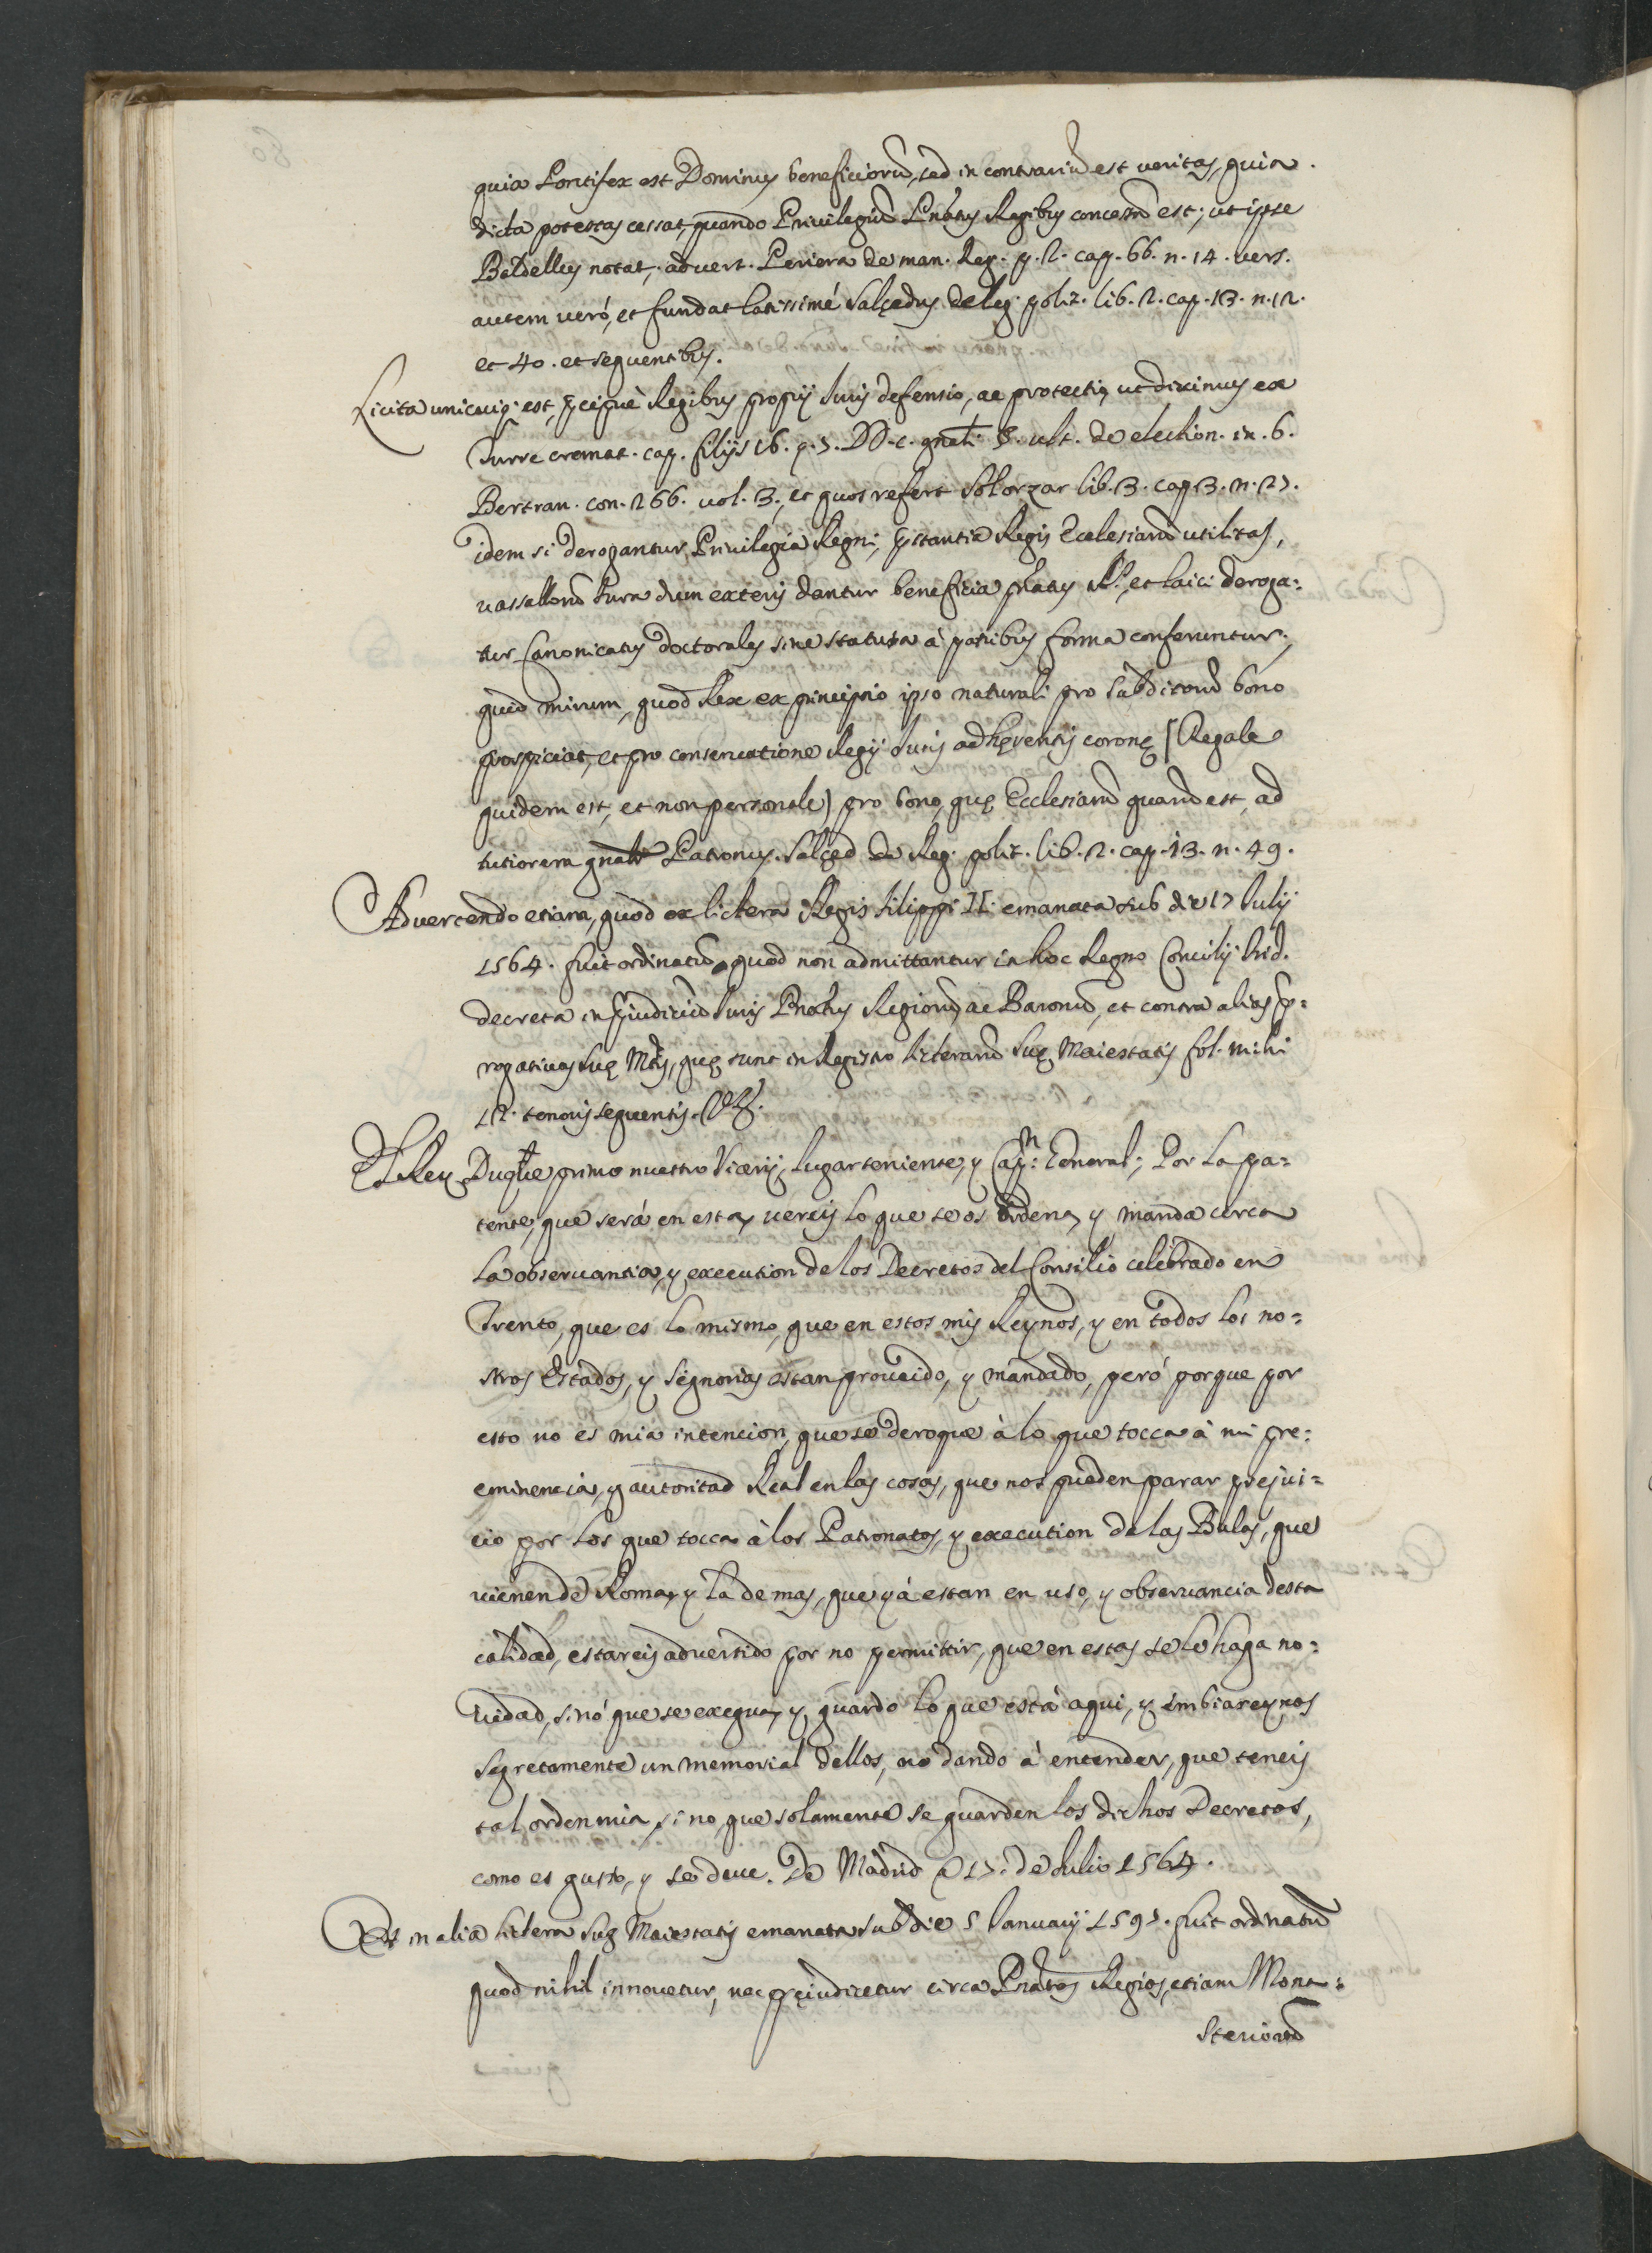 quia Pontifex est Dominus beneficiorũ, sed in contrariũ est veritas, quia
dicta potestas cessat, quando Privilegiũ Pñatus Regibus concessũ est; ut ipse
Baldellus notat, advert. Periera de man. Reg. p. 2. cap. 66. n. 14. vers.
autem veró, et fundat latissimé Salçedus de leg. polit. lib. 2. cap. 13. n. 12.
et 40. et sequentibus.
Licita unicuiq; est, pcipuè Regibus proprij Iuris defensio, ac protectio, ut diximus ex
Turre cremat. cap. filijs 16. q. 7. DD. c. gñali §. ult. de election. in. 6.
Bertran. con. 266. vol. 3., et quos refert Solorzar lib. 3. cap 3. n. 27.
idem si derogantur Privilegia Regni, pstantia Regis Ecclesiarũ utilitas,
vassallorũ Iura dum exteris dantur beneficia pñatus Rˢ., et laici deroga=
tur Canonicatus doctorales sine statuta à patribus forma conferuntur;
quid mirum, quod Rex ex principio ipso naturali pro subditorũ bono
prospiciat, et pro conservatione Regij Iuris adherentis coronę (Regale
quidem est, et non personale) pro bono, quę Ecclesiarũ quarũ est, ad
tutiorem gñalis Patronus. Salçed de Reg. polit. lib. 2. cap. 13. n. 49.
Advertendo etiam, quod ex lictera Regis Filippi II. emanata sub die 17 Iulij
1564. fuit ordinatũ, quod non admittantur in hoc Regno Concilij Trid.
decreta in pjudiciũ Iuris Pñatus Regiorũ, ac Baronũ, et contra alias p=
rogativas suę Mtis, quę sunt in Registro licterarũ suę Maiestatis fol. mihi
12. tenoris sequentis.
El Rey Duque primo nuestro Viceríj, lugarteniente, y Capⁿ: General; Por la pa=
tente, que será en esta, vereis lo que se os ordena, y manda cerca
la observantia, y execution de los Decretos del Consilio celebrado en
Trento, que es lo mismo, que en estos mis Reynos, y en todos los no=
stros Estados, y Segnorias estan proveido, y mandado, peró porque por
esto no es mia intencion, que se derogue à lo que tocca à mi pre=
eminencia, y autoritad Real en las cosas, que nos pueden parar prejui=
cio por los que tocca à los Patronatos, y execution de las Bulas, que
vienen de Roma, y la demas, que yá estan en uso, y observancia desta
calidad, estareis advertido por no permittir, que en estas se le haga no=
vedad, sinó que se exequa, y guardo lo que està aqui, y imbiareynos
segretamente un memorial dellos, no dando à entender, que teneis
tal orden mia, sino, que solamente se guarden los dichos Decretos,
como es gusto, y se deue. De Madrid a 17. de Iulio 1564.
Et in alia lictera suę Maiestatis emanata sub die 5 Ianuarij 1597. fuit ordinatũ
quod nihil innovetur, nec pręiudicetur circa Pñatus Regios, etiam Mona=
steriorũ